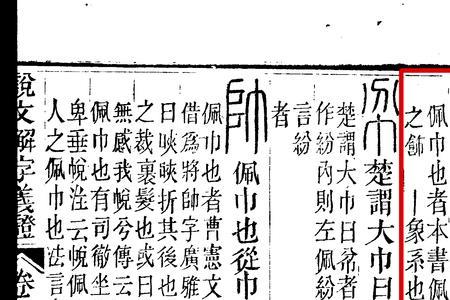 佩巾也者本書佩
之飾｜象系也
楚謂大巾曰
楚謂大巾曰帉者
作紛內則左佩紛
言紛
者
帥 佩巾也從巾
佩巾也者曹憲文
借為將帥字廣雅
曰折其後也
之裁裹髮也或曰
無感我帨兮傳云
佩巾也有司徹坐
卑垂帨注云帨佩
人之佩巾也法言
說文解字義證 卷